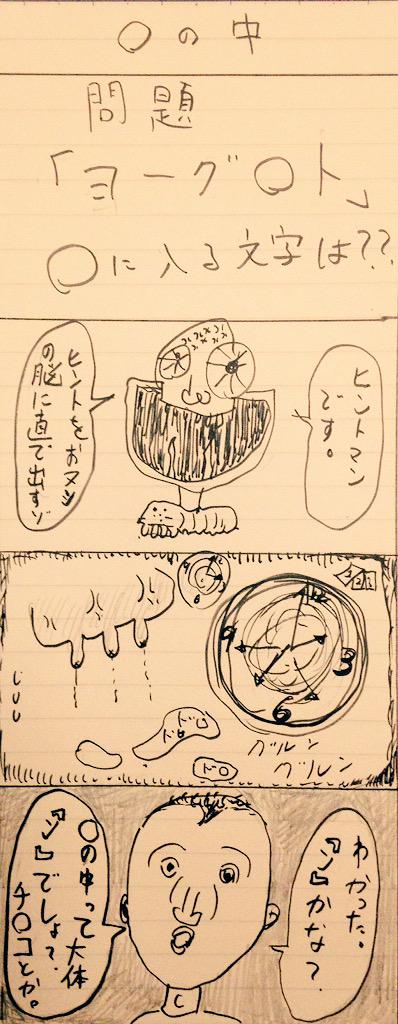 〇の中
問題
「ヨーグ〇ト」
〇に入る文字は??
ヒントマン
です。
ヒントをおヌシ
の脳に直で出すゾ
12
3
6
9
グルン
グルン
ドロ
ドロ
わかった。
『ン』かな?
〇の中って大体
『ン』でしょ?
チ〇コとか。